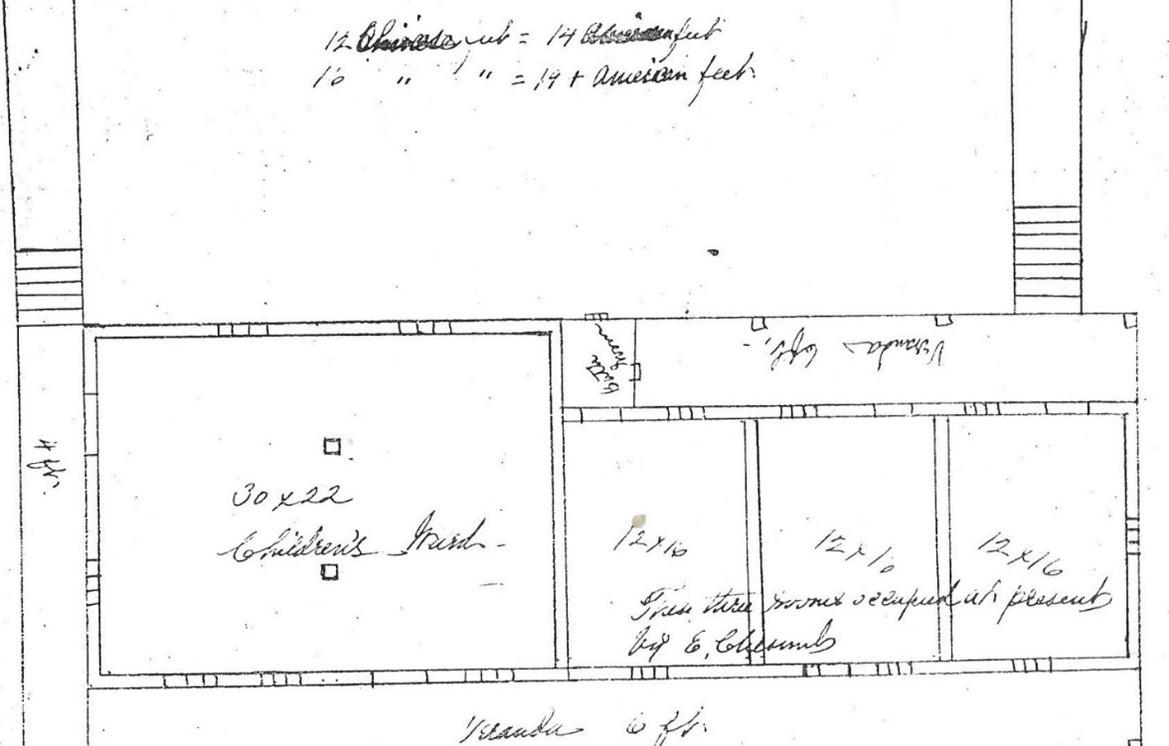 12 Chinese feet = 14 American feet
16 " " = 19 + American feet.
Bath room
Veranda 6 ft.
4 ft.
30 x 22
Children's Ward
12 x 16
12 x 16
12 x 16
These three rooms occupied at present
by E.
Veranda 6 ft.